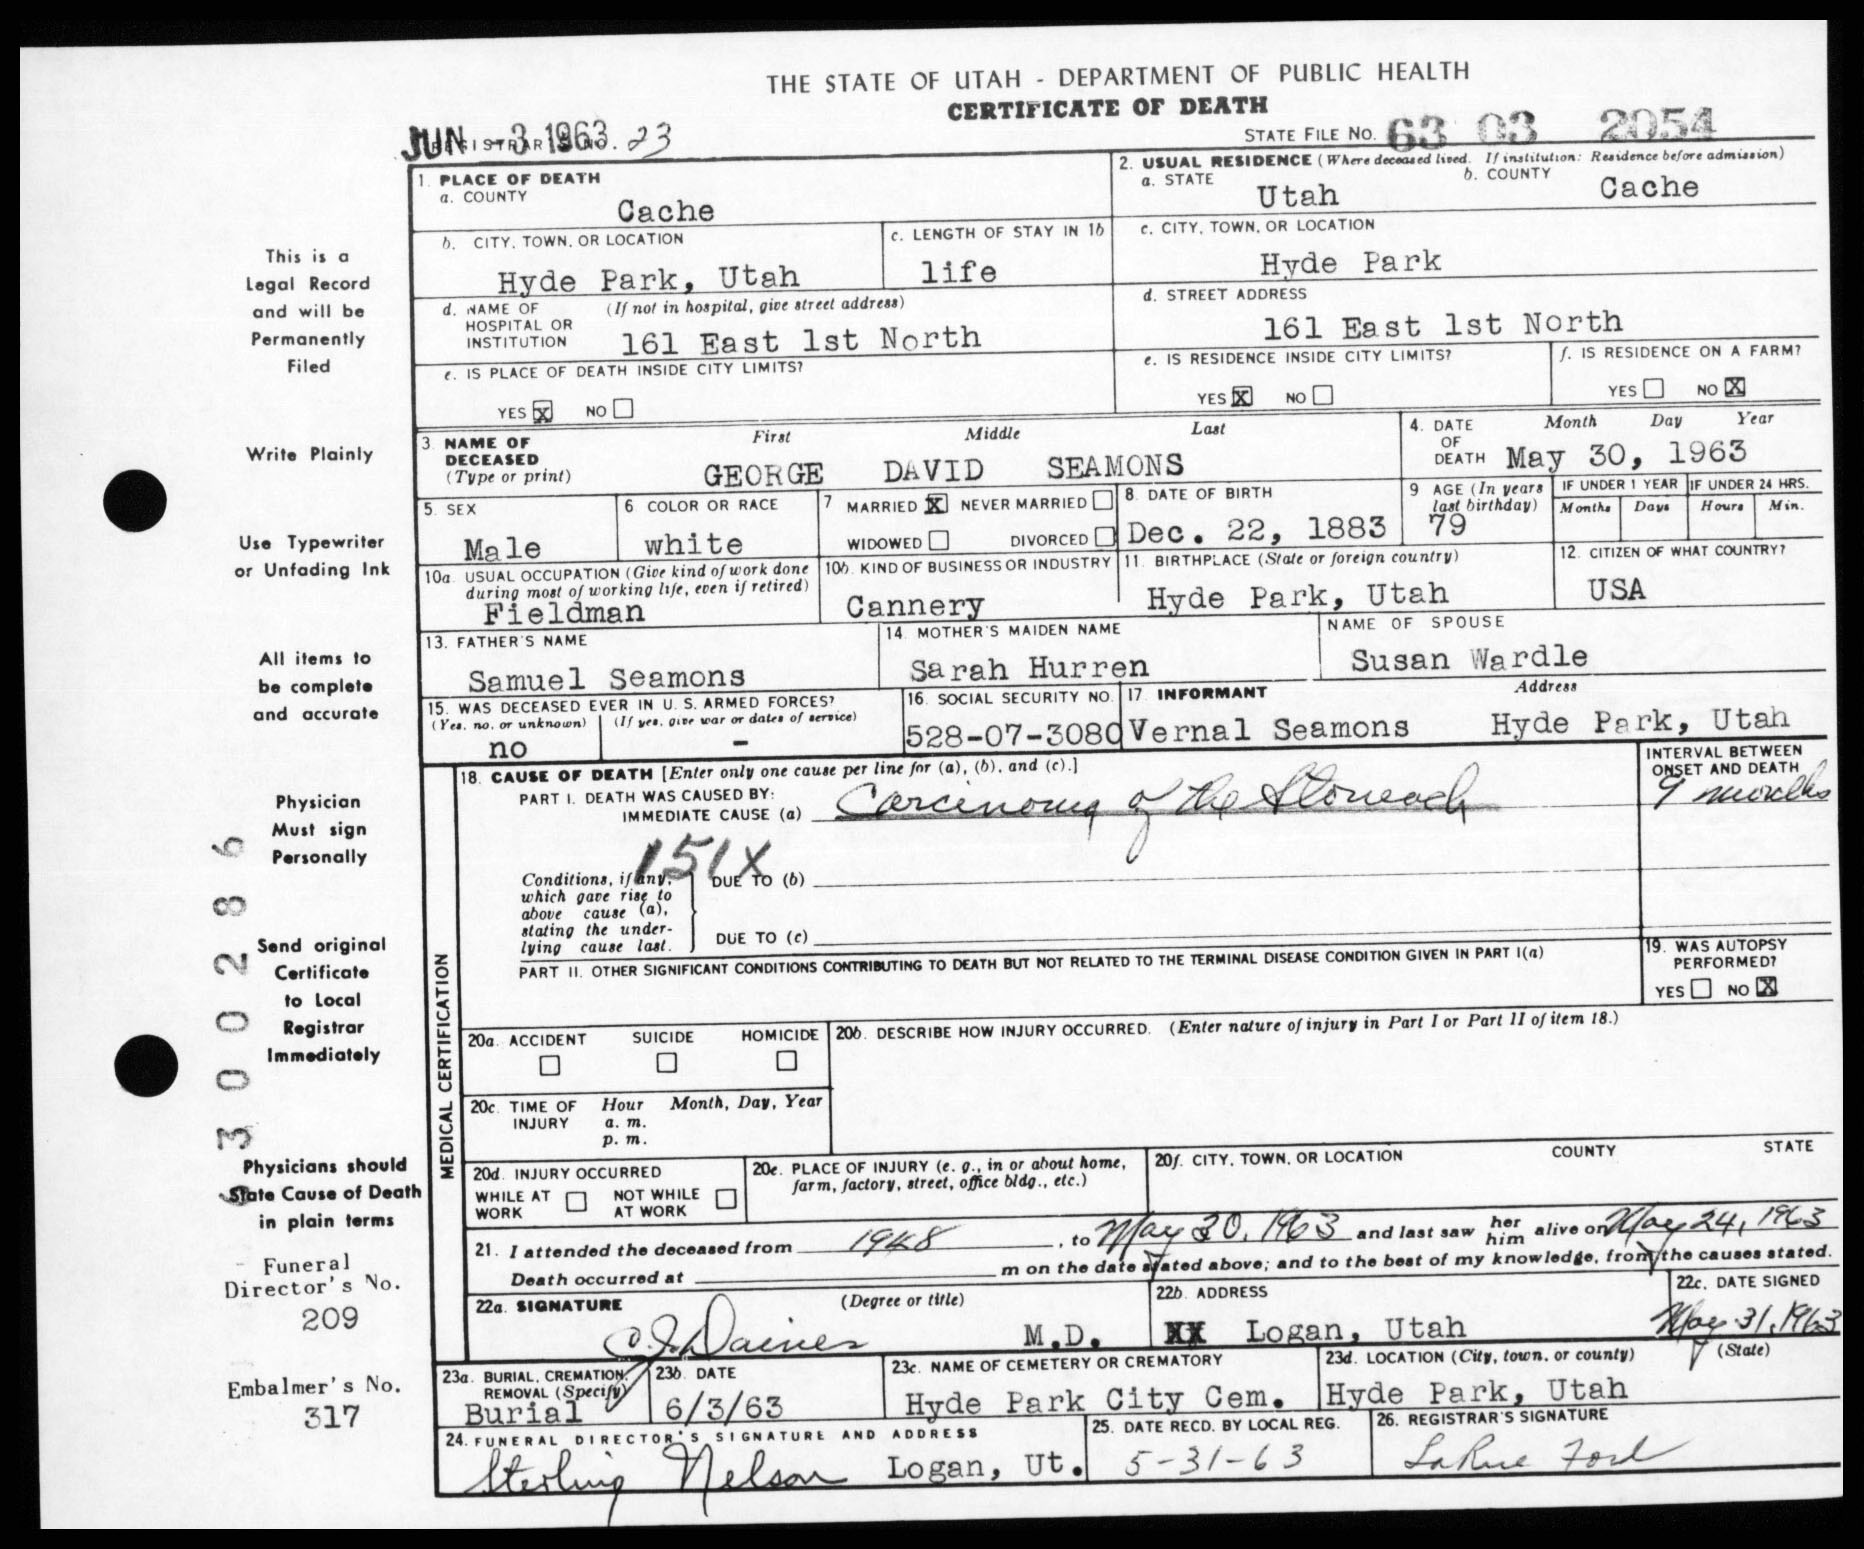 THE STATE OF UTAH - DEPARTMENT OF PUBLIC HEALTH
CERTIFICATE OF DEATH
JUN -3 1963
REGISTRAR'S NO. 23
STATE FILE NO. 63 03 2054
1. PLACE OF DEATH
a. COUNTY
Cache
2. USUAL RESIDENCE (Where deceased lived. If institution: Residence before admission)
a. STATE
Utah
b. COUNTY
Cache
b. CITY, TOWN, OR LOCATION
Hyde Park, Utah
c. LENGTH OF STAY IN 1b
life
c. CITY, TOWN, OR LOCATION
Hyde Park
d. NAME OF HOSPITAL OR INSTITUTION
(If not in hospital, give street address)
161 East 1st North
d. STREET ADDRESS
161 East 1st North
e. IS PLACE OF DEATH INSIDE CITY LIMITS?
YES X NO
e. IS RESIDENCE INSIDE CITY LIMITS?
YES X NO
f. IS RESIDENCE ON A FARM?
YES NO X
3. NAME OF DECEASED
(Type or print)
First Middle Last
GEORGE DAVID SEAMONS
4. DATE OF DEATH
Month Day Year
May 30, 1963
5. SEX
Male
6 COLOR OR RACE
white
7 MARRIED X NEVER MARRIED
WIDOWED DIVORCED
8. DATE OF BIRTH
Dec. 22, 1883
9 AGE (In years last birthday)
79
IF UNDER 1 YEAR
Months Days
IF UNDER 24 HRS.
Hours Min.
10a. USUAL OCCUPATION (Give kind of work done during most of working life, even if retired)
Fieldman
10b. KIND OF BUSINESS OR INDUSTRY
Cannery
11. BIRTHPLACE (State or foreign country)
Hyde Park, Utah
12. CITIZEN OF WHAT COUNTRY?
USA
13. FATHER'S NAME
Samuel Seamons
14. MOTHER'S MAIDEN NAME
Sarah Hurren
NAME OF SPOUSE
Susan Wardle
15. WAS DECEASED EVER IN U. S. ARMED FORCES?
(Yes, no, or unknown)
no
(If yes, give war or dates of service)
-
16. SOCIAL SECURITY NO.
528-07-3080
17. INFORMANT
Address
Vernal Seamons Hyde Park, Utah
MEDICAL CERTIFICATION
18. CAUSE OF DEATH [Enter only one cause per line for (a), (b), and (c).]
INTERVAL BETWEEN ONSET AND DEATH
PART I. DEATH WAS CAUSED BY:
IMMEDIATE CAUSE (a) Carcinoma of the Stomach
9 months
151X
Conditions, if any, which gave rise to above cause (a), stating the underlying cause last.
DUE TO (b)
DUE TO (c)
PART II. OTHER SIGNIFICANT CONDITIONS CONTRIBUTING TO DEATH BUT NOT RELATED TO THE TERMINAL DISEASE CONDITION GIVEN IN PART I(a)
19. WAS AUTOPSY PERFORMED?
YES NO X
20a. ACCIDENT SUICIDE HOMICIDE
20b. DESCRIBE HOW INJURY OCCURRED. (Enter nature of injury in Part I or Part II of item 18.)
20c. TIME OF INJURY
Hour Month, Day, Year
a. m.
p. m.
20d. INJURY OCCURRED
WHILE AT WORK NOT WHILE AT WORK
20e. PLACE OF INJURY (e. g., in or about home, farm, factory, street, office bldg., etc.)
20f. CITY, TOWN, OR LOCATION COUNTY STATE
21. I attended the deceased from 1948, to May 30, 1963 and last saw her him alive on May 24, 1963
Death occurred at m on the date stated above; and to the best of my knowledge, from the causes stated.
22a. SIGNATURE (Degree or title)
C. J. Daines M.D.
22b. ADDRESS
XX Logan, Utah
22c. DATE SIGNED
May 31, 1963
23a. BURIAL, CREMATION, REMOVAL (Specify)
Burial
23b. DATE
6/3/63
23c. NAME OF CEMETERY OR CREMATORY
Hyde Park City Cem.
23d. LOCATION (City, town, or county) (State)
Hyde Park, Utah
24. FUNERAL DIRECTOR'S SIGNATURE AND ADDRESS
Sterling Nelson Logan, Ut.
25. DATE RECD. BY LOCAL REG.
5-31-63
26. REGISTRAR'S SIGNATURE
LaRue Ford
This is a
Legal Record
and will be
Permanently
Filed
Write Plainly
Use Typewriter
or Unfading Ink
All items to
be complete
and accurate
Physician
Must sign
Personally
Send original
Certificate
to Local
Registrar
Immediately
Physicians should
State Cause of Death
in plain terms
Funeral
Director's No.
209
Embalmer's No.
317